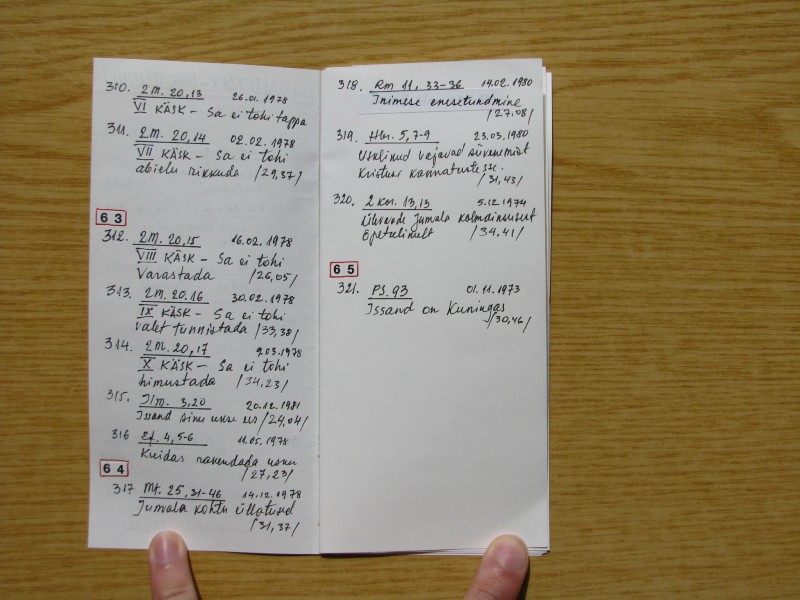 310. 2M. 20,13 26.01.1978
VI KÄSK – Sa ei tohi tappa
311. 2M. 20,14 02.02.1978
VII KÄSK – Sa ei tohi
abielu rikkuda /29,37/
63
312. 2M. 20,15 16.02.1978
VIII KÄSK – Sa ei tohi
varastada /26,05/
313. 2M. 20.16 30.02.1978
IX KÄSK – Sa ei tohi
valet tunnistada /33,38/
314. 2M. 20,17 9.03.1978
X KÄSK – Sa ei tohi
himustada /34,23/
315. Ilm. 3,20 20.12.1981
Issand sinu ukse ees /24,04/
316 Ef. 4,5-6 11.05.1978
Kuidas rakendada usku
/27,23/
64
317 Mt. 25,31-46 14.12.1978
Jumala kohtu üllatused
/31,37/
318. Rm 11, 33-36 14.02.1980
Inimese enesetundmine
/27,08/
319. Hbr. 5,7-9 23.03.1980
Usklikud vajavad süvenemist
Kristuse kannatustesse.
/31,43/
320. 2 Kor. 13,13 5.12.1974
Ühendu Jumala kolmainsusest
õpetulikult /34,41/
65
321. PS. 93 01.11.1973
Issand on Kuningas
/30,46/